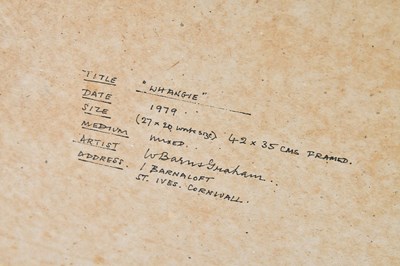 TITLE "WHANGIE"
DATE 1979.
SIZE (27 x 20 work size) 42 x 35 CMS FRAMED.
MEDIUM MIXED.
ARTIST W Barns Graham.
ADDRESS. 1 BARNALOFT
ST. IVES. CORNWALL.